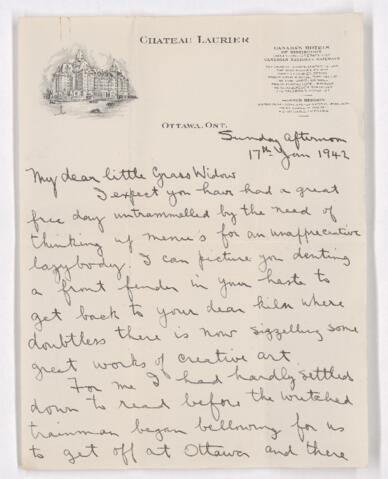 CHATEAU LAURIER
CANADA'S HOTELS
OF DISTINCTION
CANADIAN NATIONAL RAILWAYS
OTTAWA, ONT.
Sunday afternoon
17th Jan 1942
My dear little Grass Widow
I expect you have had a great
free day untrammelled by the need of
thinking up menu's for an unappreciative
lazybody. I can picture you denting
a front fender in your haste to
get back to your dear kiln where
doubtless there is now sizzelling some
great works of creative art.
For me I had hardly settled
down to read before the wretched
trainman began bellowing for us
to get off at Ottawa and there